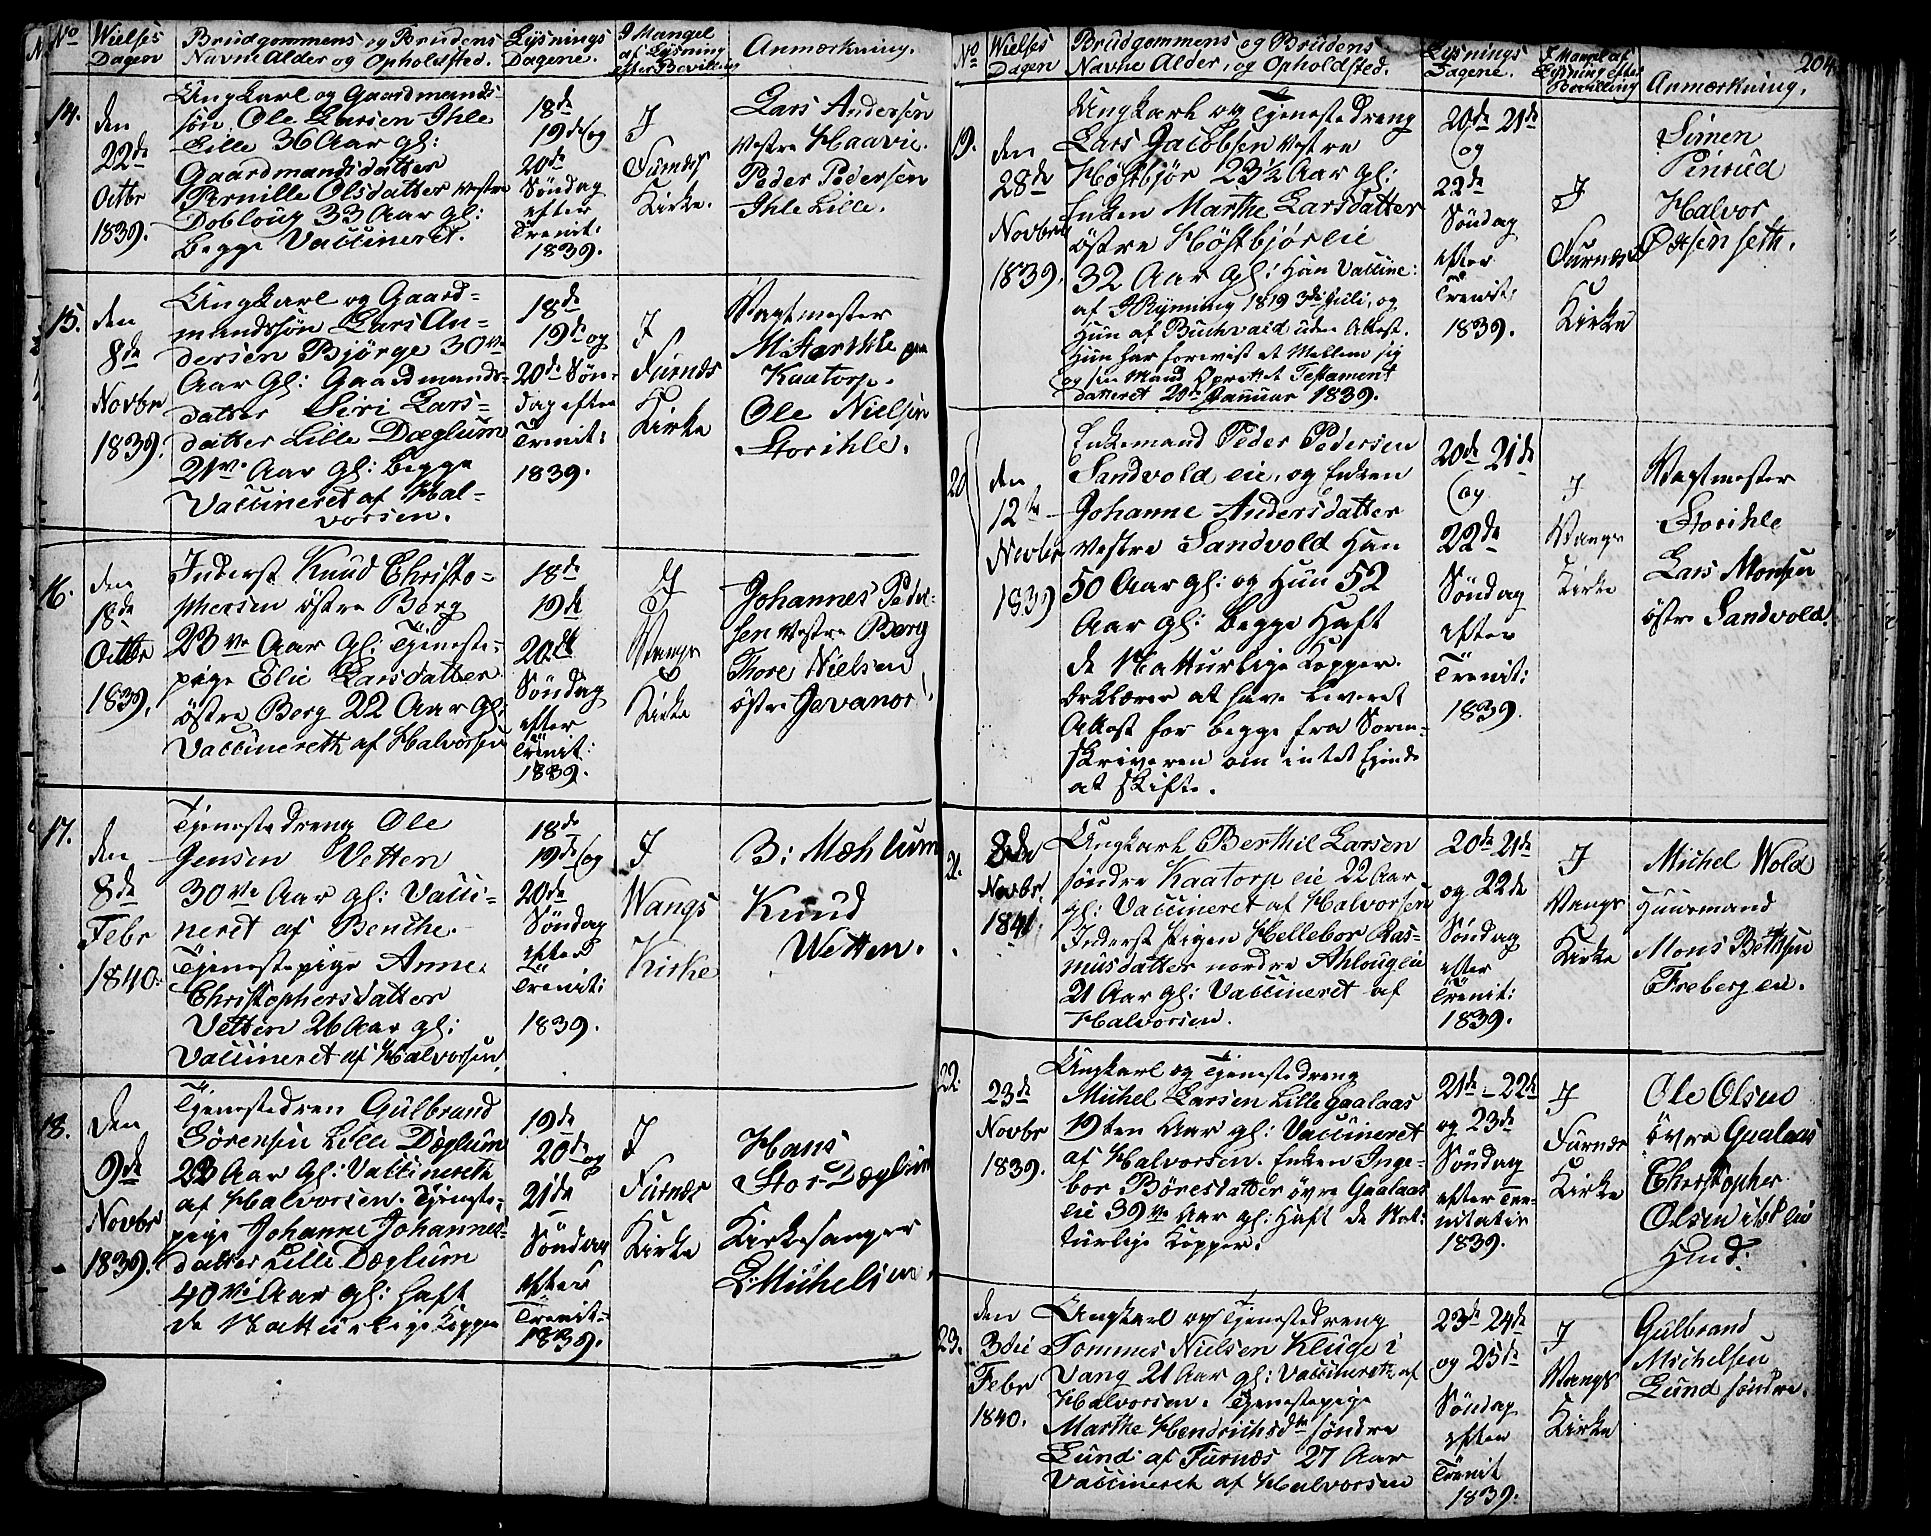 No
Wielses
Dagen
Brudgommens og Brudens
Navne Alder og Opholdsted.
Lysnings
Dagene.
I Mangel
af Lysning
efter Bevilling
Anmærkning.
14.
den
22de
Octbr
1839.
Ungkarl og Gaardmands-
søn Ole Larsen Ihle
Lille 36 Aar gl:
Gaardmandsdatter
Pernille Olsdatter vestre
Dobloug 33 Aar gl:
begge Vaccineret.
18de
19de og
20de
Søndag
efter
Trenit:
1839.
I
Furnæs
Kirke.
Lars Andersen
vestre Haavie.
Peder Pedersen
Ihle Lille.
15.
den
8de
Novbr
1839.
Ungkarl og Gaard-
mandssøn Lars An-
dersen Bjørge 30ve
Aar gl: Gaardmands-
datter Siri Lars-
datter Lille Dæglum
21ve Aar gl: begge
Vaccineret af Hal-
vorsen.
18de
19de og
20de Søn-
dag efter
Trenit:
1839.
I
Furnæs
Kirke
Vagtmester
M: Storihle paa
Kaatorp.
Ole Nielsen
Storihle.
16.
den
18de
Octbr
1839.
Inderst Knud Christo-
phersen østre Berg
23ve Aar gl: Tjeneste-
pige Elie Larsdatter
østre Berg 22 Aar gl:
Vaccinereth af Halvorsen
18de
19de
20de
Søndag
efter
Trenit:
1839.
I
Vangs
Kirke
Johannes Peder-
sen vestre Berg
Thore Nielsen
østre Jevanor.
17.
den
8de
Febr
1840.
Tjenestedreng Ole
Jensen Vetten
30ve Aar gl: Vacci-
neret af Benche.
Tjenestepige Anne
Christophersdatter
Vetten 26 Aar gl:
Vaccineret af Halvorsen.
18de
19de og
20de
Søndag
efter
Trenit:
1839.
I
Wangs
Kirke
B: Mæhlum
Knud
Wetten.
18.
Den
9de
Novbr
1839.
Tjenestedren Gulbrand
Sørensen Lille Dæglum
23 Aar gl: Vaccinereth
af Halvorsen. Tjeneste-
pige Johanne Johannes-
datter Lille Dæglum
40ve Aar gl: haft
de Natturlige Kopper
19de
20de og
21de
Søndag
efter
Trenit:
1839.
I
Furnæs
Kirke
Hans
Stor-Dæglum
Kirkesanger
L: Michelsen.
204.
No
Wielses
Dagen
Brudgommens og Brudens
Navne Alder, og Opholdsted.
Lysnings
Dagene.
I Mangel af
Lysning efter
Bevilling
Anmærkning.
19.
den
28de
Novbr
1839.
Ungkarl og Tjenestedreng
Lars Jacobsen vestre
Høstbjør 23½ Aar gl:
Enken Marthe Larsdatter
østre Høstbjør eie
32 Aar gl: Han Vaccine:
af Rynning 1819 3de Juli, og
Hun af Buchvald uden Attest.
Hun har forevist et Mellem sig
og sin Mand Oprettet Testament
datteret 20de Januar 1839.
20de 21de
og
22de
Søndag
efter
Trenit:
1839.
I
Furnæs
Kirke
Simen
Pinrud
Halvor
Ottsen seth.
20
den
12te
Novbr
1839
Enkemand Peder Pedersen
Sandvold eie, og Enken
Johanne Andersdatter
vestre Sandvold Han
50 Aar gl: og Hun 52
Aar gl: begge Haft
de Natturlige Kopper.
Erklærer at have leveret
Attest for begge fra Soren-
skriveren om intet Eiende
at skifte.
20de 21de
og
22de
Søndag
efter
Trenit:
1839.
I
Vangs
Kirke
Vagtmester
Storihle
Lars Monsen
østre Sandvold.
21.
8de
Novbr
1841.
Ungkarl Berthil Larsen
søndre Kaatorp eie 22 Aar
gl: Vaccineret af Halvorsen
Inderst Pigen Hellebor Ras-
musdatter nordre Ahloug eie
21 Aar gl: Vaccineret af
Halvorsen.
20de 21de
og 22de
Søndag
efter
Trenit:
1839.
I
Vangs
Kirke
Michel Wold
Huusmand
Mons
Freberg eie.
22.
23de
Novbr
1839.
Ungkarl og Tjenestedreng
Michel Larsen Lille Gaalaas
19ten Aar gl: Vaccineret
af Halvorsen. Enken Inge-
bor Børesdatter øvre Gaalaas
eie 39ve Aar gl: Haft de Nat-
turlige Kopper.
21de - 22de
og 23de
Søndag
efter Tre-
nitatis
1839.
I
Furnæs
Kirke
Ole Olsen
øvre Gaalaas
Christopher
Olsen ibt eie
Hmd:
23.
den
3die
Febr
1840.
Ungkarl og Tjenestedreng
Tommes Nielsen Kluge i
Vang 21 Aar gl: Vaccinereth af
Halvorsen. Tjenestepige
Marthe Hendrichsdtr søndre
Lund af Furnæs 27 Aar
Vaccineret af Halvorsen
23de 24de
og 25de
Søndag
efter
Trenit
1839.
I
Vangs
Kirke
Gulbrand
Michelsen
Lund søndre.